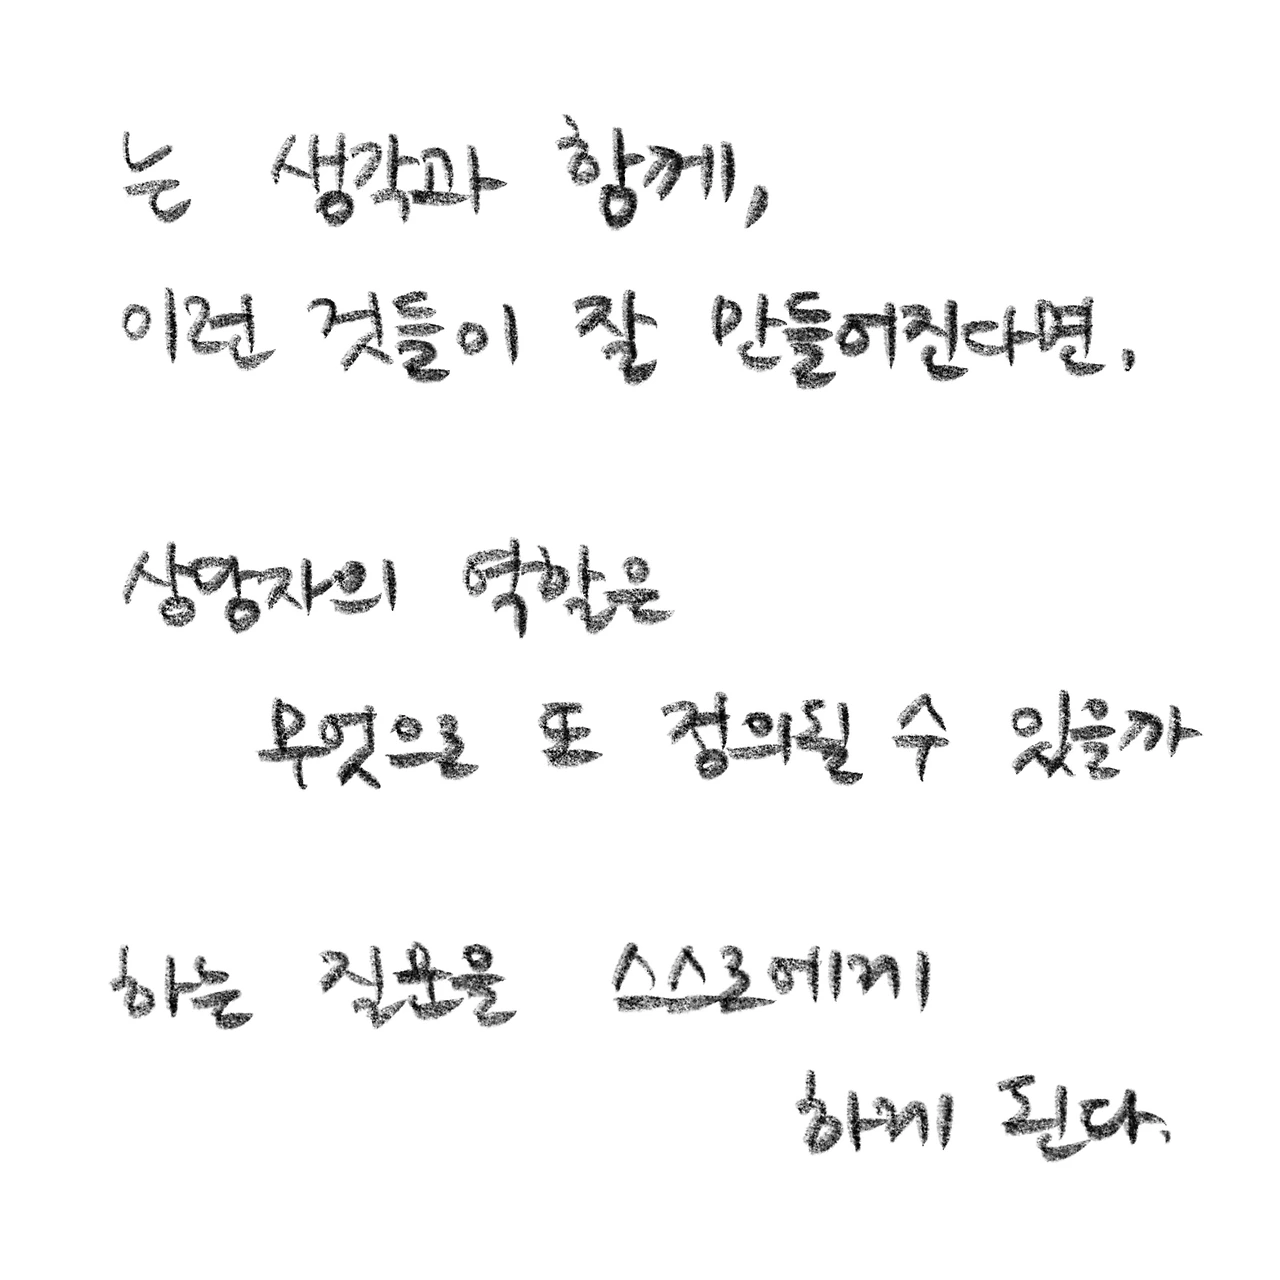 는 생각과 함께,
이런 것들이 잘 만들어진다면,
상망자의 역할은
무엇으로 또 정의될 수 있을까
하는 질문을 스스로에게
하게 된다.